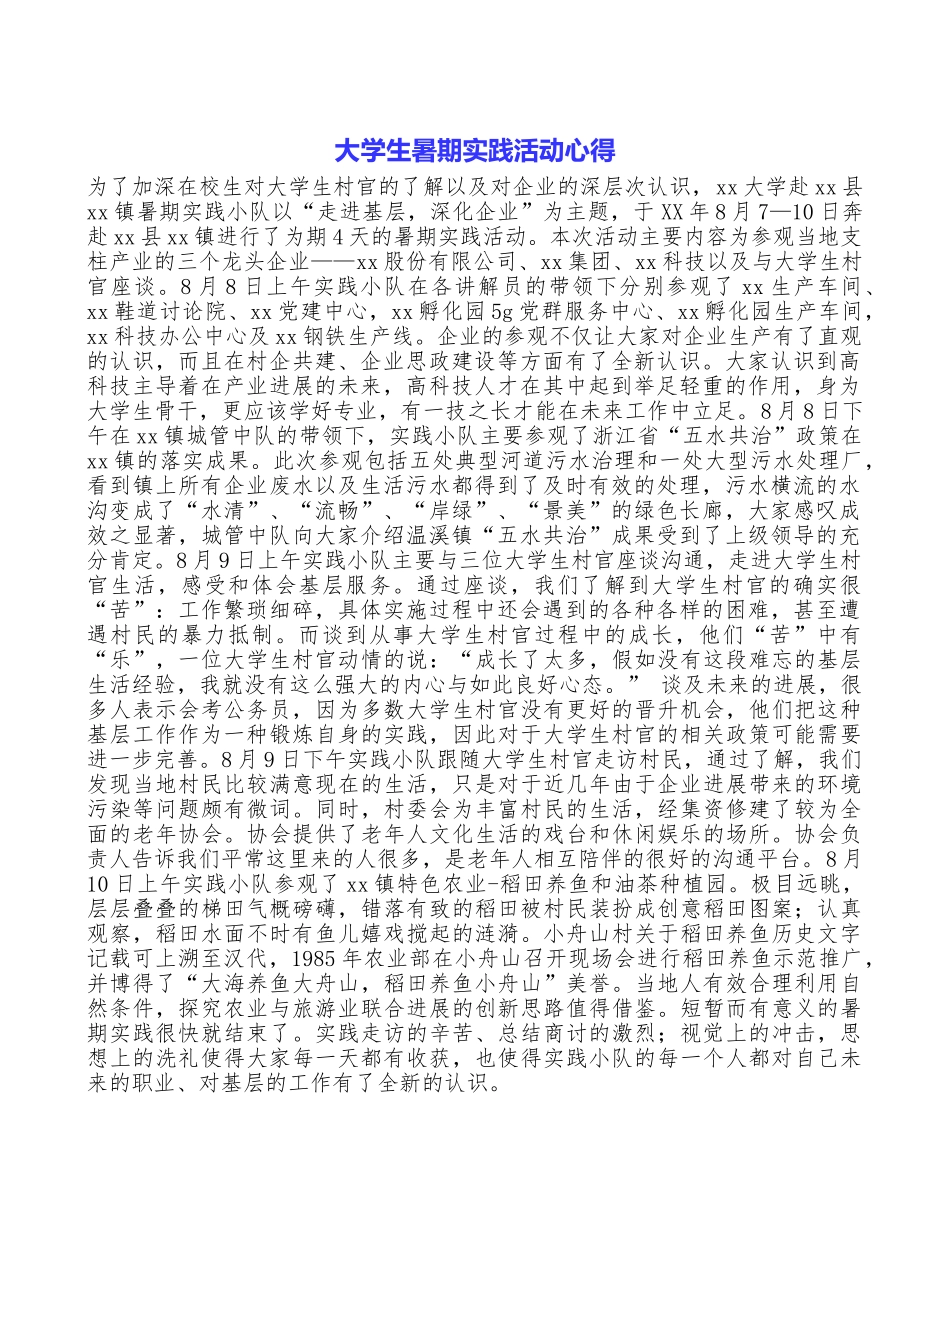 大学生暑期实践活动心得
为了加深在校生对大学生村官的了解以及对企业的深层次认识，xx 大学赴 xx 县
xx 镇暑期实践小队以“走进基层，深化企业”为主题，于 XX 年 8 月 7—10 日奔
赴 xx 县 xx 镇进行了为期 4 天的暑期实践活动。本次活动主要内容为参观当地支
柱产业的三个龙头企业——xx 股份有限公司、xx 集团、xx 科技以及与大学生村
官座谈。8 月 8 日上午实践小队在各讲解员的带领下分别参观了 xx 生产车间、
xx 鞋道讨论院、xx 党建中心，xx 孵化园 5g 党群服务中心、xx 孵化园生产车间，
xx 科技办公中心及 xx 钢铁生产线。企业的参观不仅让大家对企业生产有了直观
的认识，而且在村企共建、企业思政建设等方面有了全新认识。大家认识到高
科技主导着在产业进展的未来，高科技人才在其中起到举足轻重的作用，身为
大学生骨干，更应该学好专业，有一技之长才能在未来工作中立足。8 月 8 日下
午在 xx 镇城管中队的带领下，实践小队主要参观了浙江省“五水共治”政策在
xx 镇的落实成果。此次参观包括五处典型河道污水治理和一处大型污水处理厂，
看到镇上所有企业废水以及生活污水都得到了及时有效的处理，污水横流的水
沟变成了“水清”、“流畅”、“岸绿”、“景美”的绿色长廊，大家感叹成
效之显著，城管中队向大家介绍温溪镇“五水共治”成果受到了上级领导的充
分肯定。8 月 9 日上午实践小队主要与三位大学生村官座谈沟通，走进大学生村
官生活，感受和体会基层服务。通过座谈，我们了解到大学生村官的确实很
“苦”：工作繁琐细碎，具体实施过程中还会遇到的各种各样的困难，甚至遭
遇村民的暴力抵制。而谈到从事大学生村官过程中的成长，他们“苦”中有
“乐”，一位大学生村官动情的说：“成长了太多，假如没有这段难忘的基层
生活经验，我就没有这么强大的内心与如此良好心态。” 谈及未来的进展，很
多人表示会考公务员，因为多数大学生村官没有更好的晋升机会，他们把这种
基层工作作为一种锻炼自身的实践，因此对于大学生村官的相关政策可能需要
进一步完善。8 月 9 日下午实践小队跟随大学生村官走访村民，通过了解，我们
发现当地村民比较满意现在的生活，只是对于近几年由于企业进展带来的环境
污染等问题颇有微词。同时，村委会为丰富村民的生活，经集资修建了较为全
面的老年协会。协会提供了老年人文化生活的戏台和休闲娱乐的场所。协会负
责人告诉我们平常这里来的人很多，是老年人相互陪伴的很好的沟通平台。8 月
10 日上午实践小队参观了 xx 镇特色农业-稻田养鱼和油茶种植园。极目远眺，
层层叠叠的梯田气概磅礴，错落有致的稻田被村民装扮成创意稻田图案；认真
观察，稻田水面不时有鱼儿嬉戏搅起的涟漪。小舟山村关于稻田养鱼历史文字
记载可上溯至汉代，1985 年农业部在小舟山召开现场会进行稻田养鱼示范推广，
并博得了“大海养鱼大舟山，稻田养鱼小舟山”美誉。当地人有效合理利用自
然条件，探究农业与旅游业联合进展的创新思路值得借鉴。短暂而有意义的暑
期实践很快就结束了。实践走访的辛苦、总结商讨的激烈；视觉上的冲击，思
想上的洗礼使得大家每一天都有收获，也使得实践小队的每一个人都对自己未
来的职业、对基层的工作有了全新的认识。